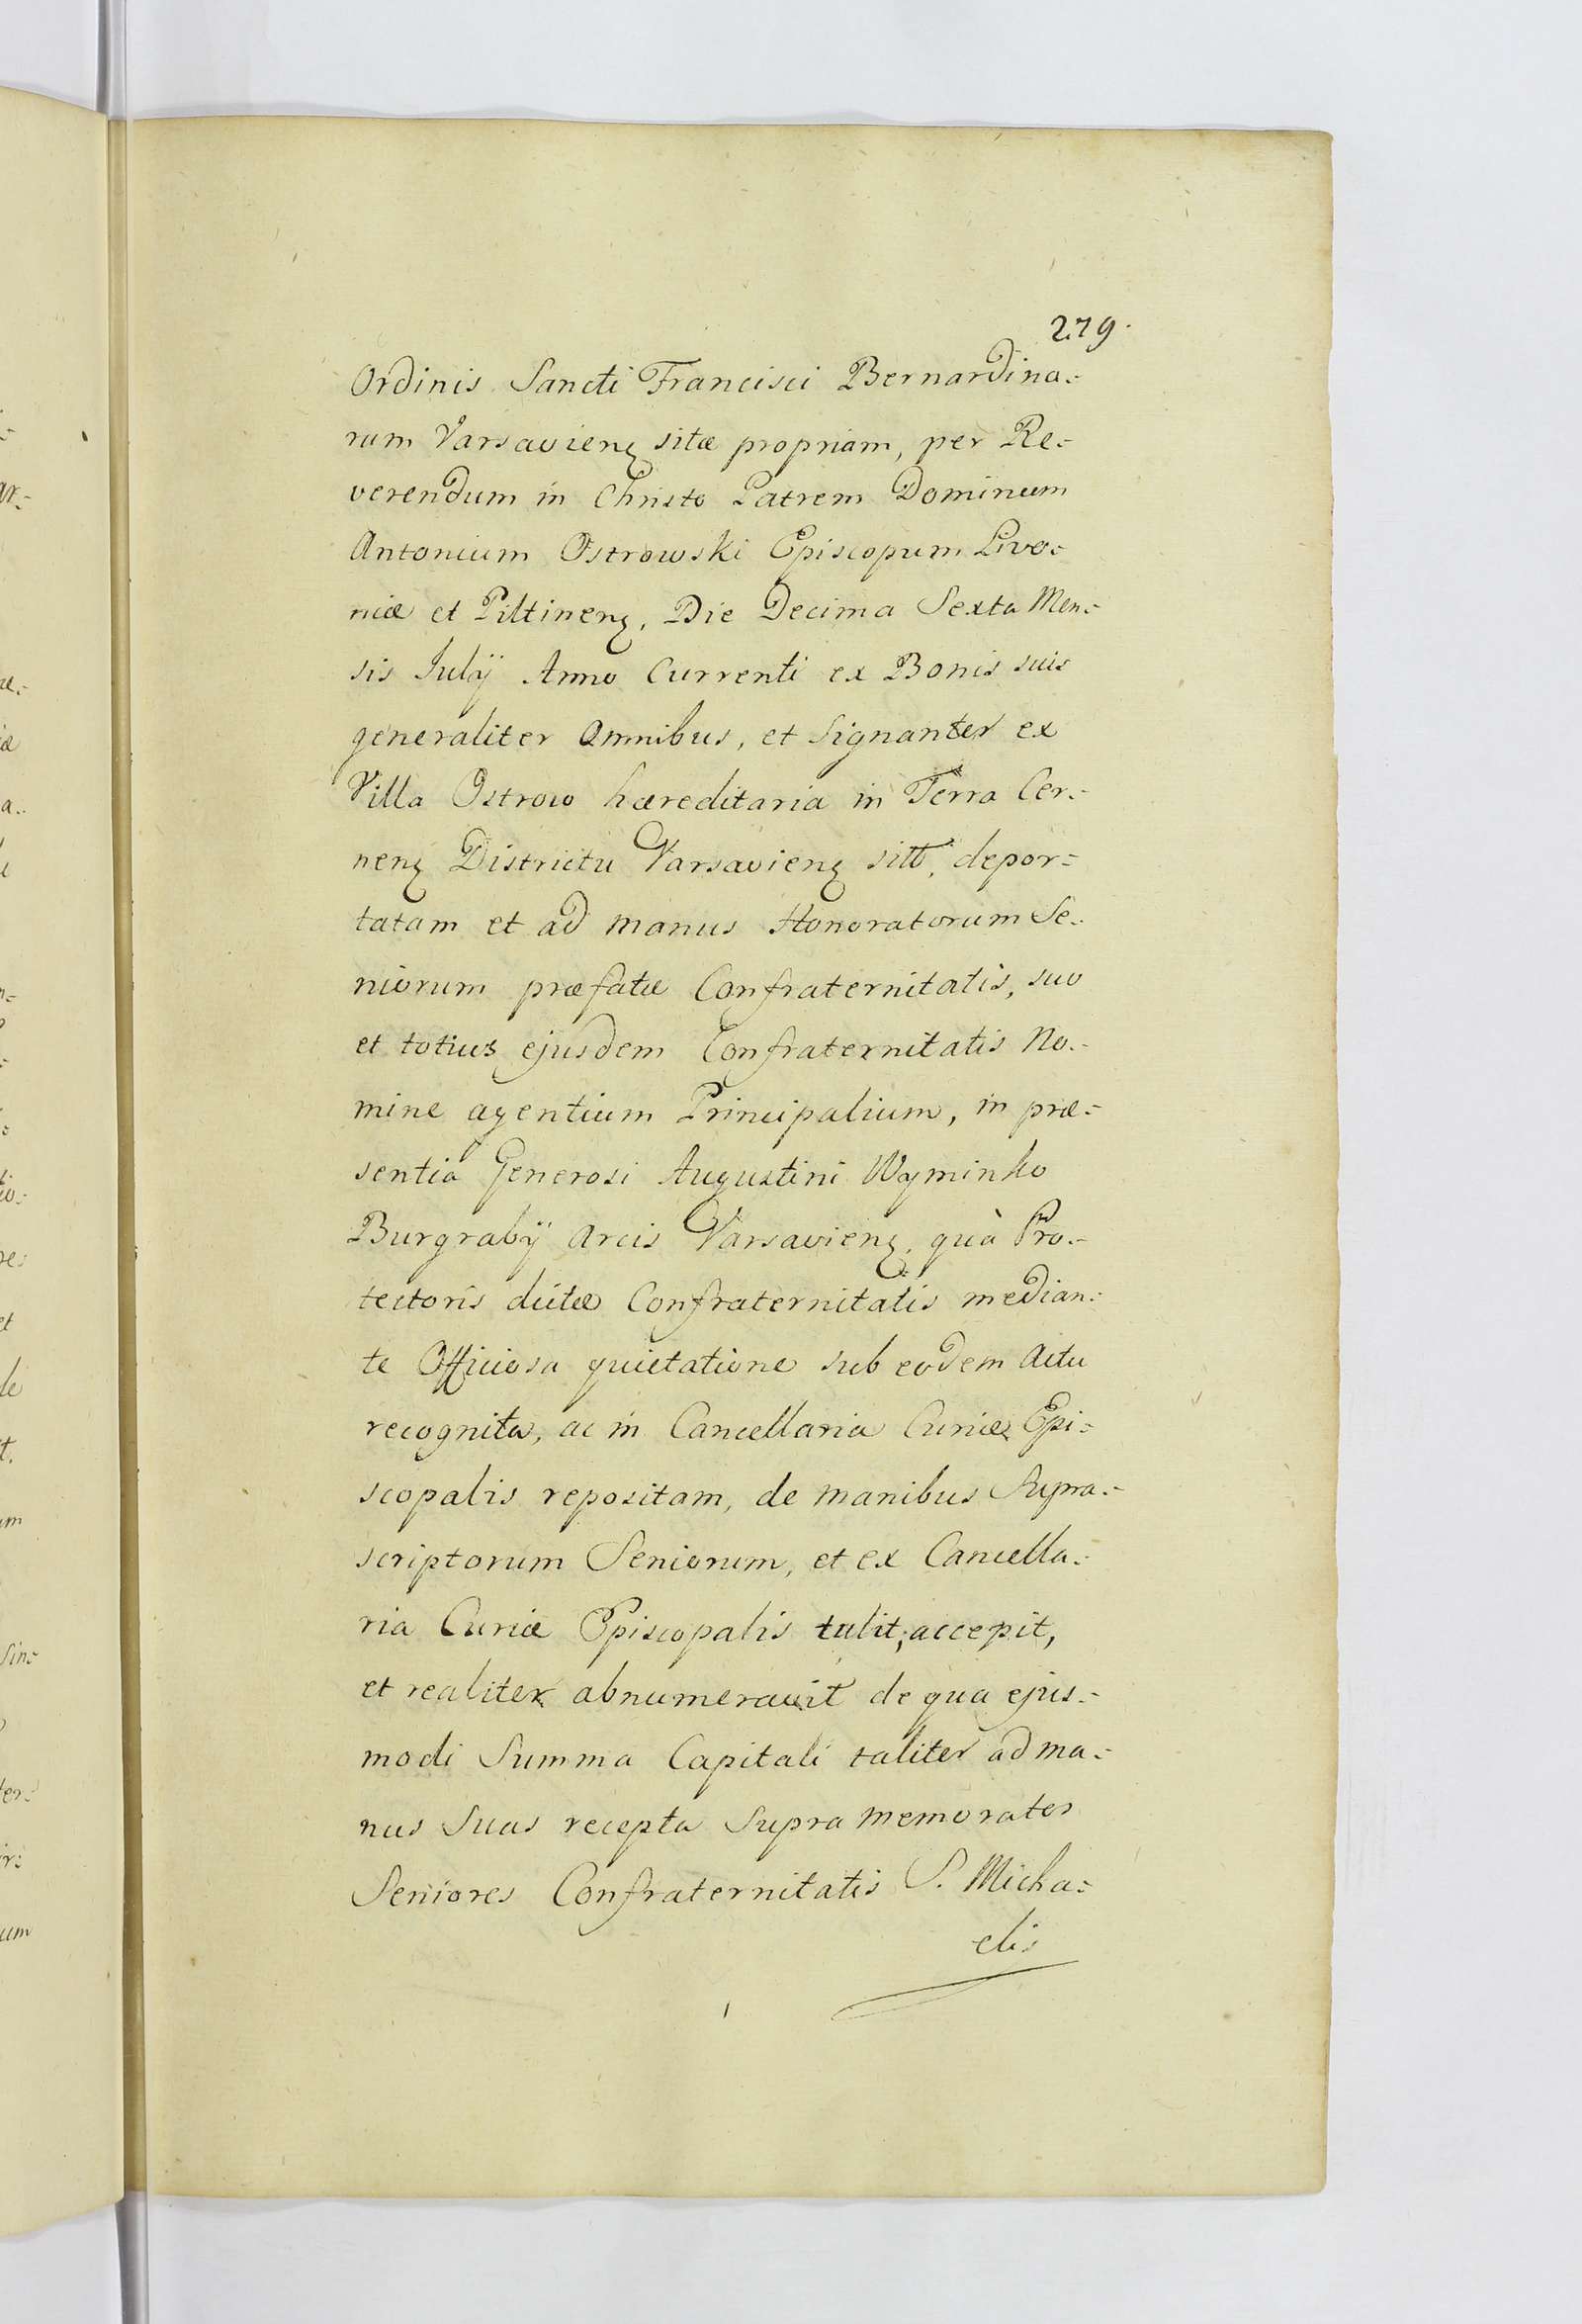 279.
Ordinis Sancti Francisci Bernardina=
rum Varsavienȝ sitæ propriam, per Re=
verendum in Christo Patrem Dominum
Antonium Ostrowski Episcopum Livo=
niæ et Piltinenȝ, Die Decima Sexta Men=
sis Julÿ Anno Currenti ex Bonis suis
generaliter Omnibus, et Signanter ex
Villa Ostrow hæreditaria in Terra Cer=
nenȝ Districtu Varsavienȝ sitt, depor=
tatam et ad manus Honoratorum Se=
niorum præfatæ Confraternitatis, suo
et totius ejusdem Confraternitatis No=
mine agentium Principalium, in præ=
sentia Generosi Augustini Wyminko
Burgrabÿ Arcis Varsavienȝ, quà Pro=
tectoris dictæ Confraternitatis median=
te Officiosa quietatione sub eodem Actu
recognita, ac in Cancellaria Curiæ Epi=
scopalis repositam, de manibus Supra=
scriptorum Seniorum, et ex Cancella=
ria Curiæ Episcopalis tulit, accepit,
et realiter abnumeravit de qua ejus=
modi Summa Capitali taliter ad ma=
nus Suas recepta Supra memorates
Seniores Confraternitatis S. Micha=
elis